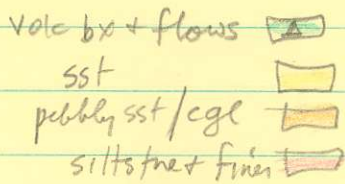 volc bx + flows
sst
pebbly sst/cgl
siltstne + finer